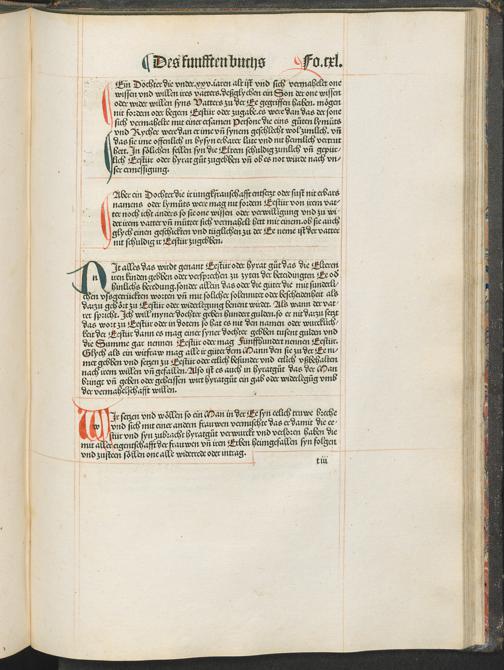 Des fünfften buchs Fo.cxl.
Ein Dochter die vnder.xxv.iaren alt ist vnd sich vermahelet one
wissen vnd willen ires vatters.deßglychen ein Son der one wissen
oder wider willen syns Vatters zu der Ee gegriffen haben. mögen
nit fordern oder begern Eestür oder zugabe.es were dan das der son
sich vermahelte mit einer ersamen Persone die eins gůten lymůts
vnd Rycher wer dan er ime vñ synem geschlecht wol zimlich. vñ
das sie ime offenlich in bysyn erbarer lüte vnd nit heimlich vertru
wet. In sölichen fellen syn die Eltern schuldig zimlich vñ gepür-
lich Eestür oder hyrat gůt zugebben vñ ob es not würde nach vn-
ser ermessigung.
Aber ein Dochter die ir iungkfrauschafft entsetzt oder sust nit erbars
namens oder lymůts were mag nit fordern Eestür von irem vat-
ter noch icht anders so sie one wissen oder verwilligung vnd zu wi-
der irem vatter vñ můtter sich vermahelt hett mit einem.ob sie auch
glych einen geschickten vnd tüglichen zu der Ee neme ist der vatter
nit schuldig ir Eestür zugebben.
Nit alles das wirdt genant Eestür oder hyrat gůt das die Elteren
iren kinden gebben oder versprechen zu zyten der beteidingten Ee od
hinlichs beredung.sonder allein das oder die gůter die mit sunderli-
chen vßgetruckten worten vñ mit solicher solennitet oder bescheidenheit als
darzu gehört zu Eestür oder widerlegung benent würdet. Als wann der vat-
ter spricht. Ich will myner dochter geben hundert gulden.so er nit darzu setzt
das wort zu Eestür oder in dotem so hat es nit den namen oder würcklich-
keit der Eestür dann es mag einer syner dochter gebben tusent gulden vnd
die Summe gar nennen Eestür oder mag Fünffhundert nennen Eestür.
Glych als ein witfraw mag alle ir gůter dem Mann den sie zu der Ee ni-
met gebben vnd setzen zu Eestür oder etlich besunder vnd etlich vßbehalten
nach irem willen vñ gefallen. Also ist es auch in hyratgůt das der Man
bringt vñ geben oder geheissen wirt hyratgůt ein gab oder widerlegūg vmb
der vermahelschafft willen.
Wir setzen vnd wöllen so ein Man in der Ee syn eelich truw breche
vnd sich mit einer andern frauwen vermischet das er damit die ee-
stür vnd syn zubracht hyratgůt verwirckt vnd verloren haben die
mit aller eigenschafft der frauwen vñ iren Erben heimgefallen syn folgen
vnd zusteen söllen one alle widerrede oder intrag.
t iii